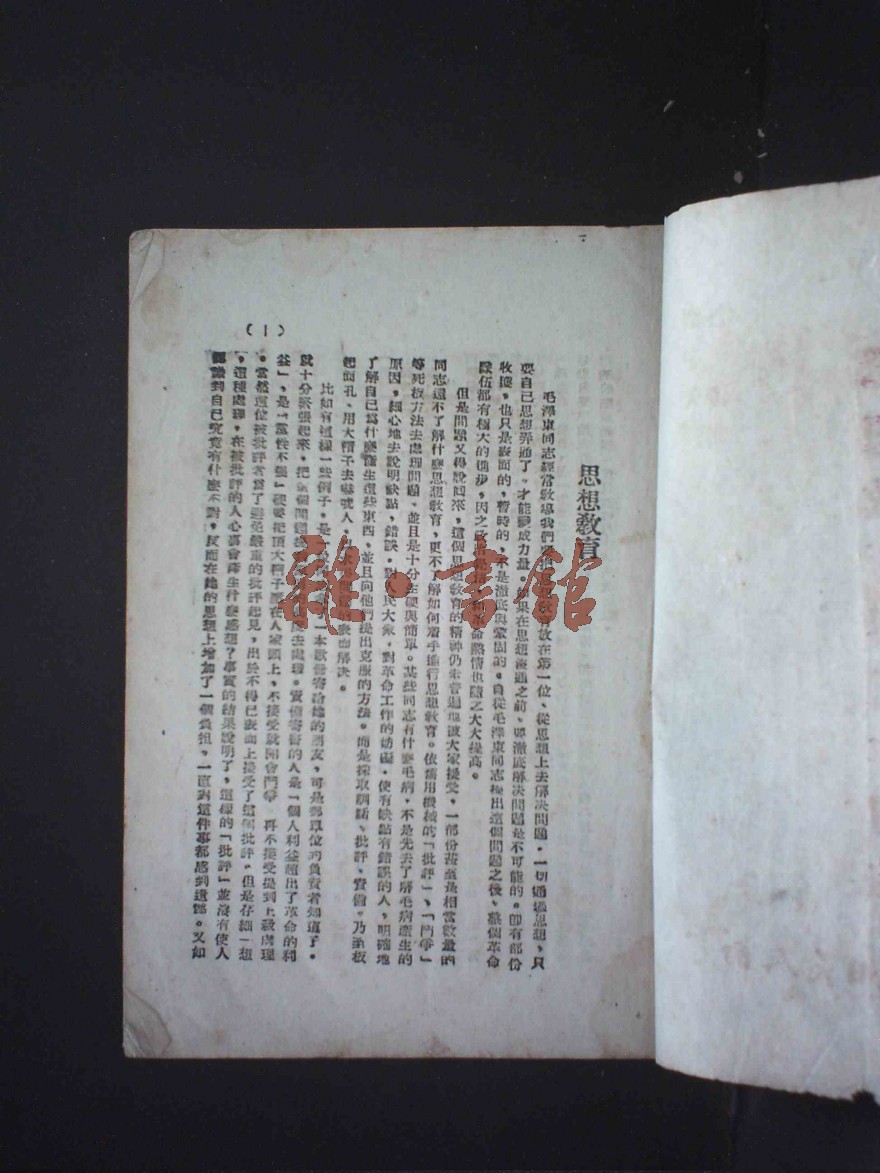 思想教育
毛澤東同志經常教導我們要把思想教育放在第一位、從思想上去解决問題，一切通過思想，只
要自己思想弄通了。才能變成力量。如果在思想溝通之前、要澈底解决問題是不可能的。即有部份
收獲，也只是表面的，暫時的，不是澈底與鞏固的。自從毛澤東同志提出這個問題之後、整個革命
隊伍都有極大的進步，因之政治熱情也隨之大大提高。
但是問題又得說回來，這個思想教育的精神仍未普遍地被大家接受，一部份甚至是相當數量的
同志還不了解什麼思想教育，更不了解如何着手進行思想教育。依舊用機械的「批評」、「鬥爭」
等死板方法去處理問題、並且是十分生硬與簡單。某些同志有什麼毛病，不是先去了解毛病產生的
原因，細心地去說明缺點，錯誤，對人民大衆，對革命工作的妨礙，使有缺點有錯誤的人，明確地
了解自己爲什麼產生這些東西，並且向他們提出克服的方法。而是採取訓話、批評，責備。乃至板
起面孔、用大帽子去嚇唬人，問題的表面解决。
比如有這樣一些例子，是一本款書寄給她的朋友，可是那單位的負責者知道了。
就十分緊張起來，把這個問題去處理。責備寄書的人是「個人利益超出了革命的利
益」，是「黨性不强」硬要把頂大帽子壓在人家頭上、不接受就開會鬥爭 再不接受提到上級處理
。當然這位被批評者爲了避免嚴重的批評起見，出於不得已表面上接受了這個批評，但是仔細一想
，這種處理，在被批評的人心裏會產生什麼感想？事實的結果說明了，這樣的「批評」並沒有使人
認識到自己究竟有什麼不對，反而在她的思想上增加了一個負担，一直對這件事都感到遺憾。又如
(1)
雜·書館